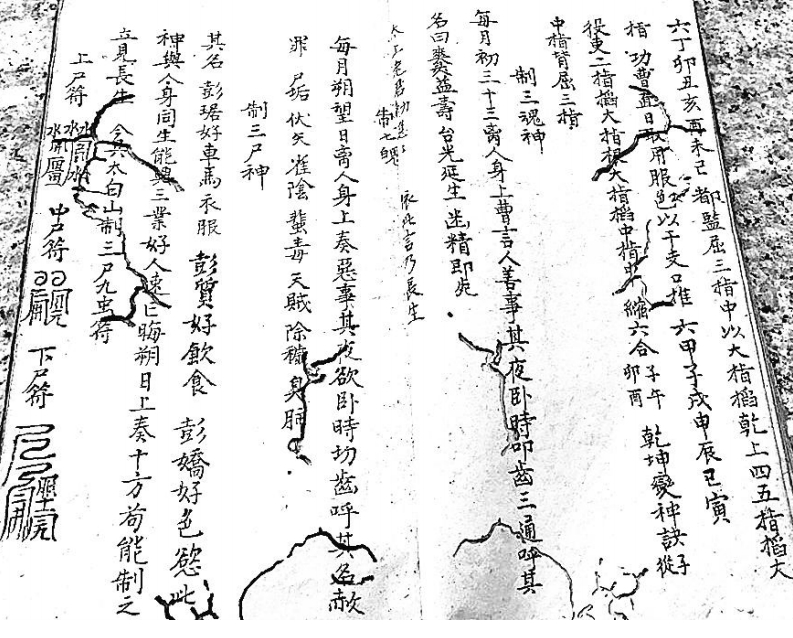 六丁卯丑亥酉未巳都監屈三指中以大指搯乾上四五指搯大
指功曹直日取用服色以干支口推六甲子戌申辰寅
役吏二指搯大指根大指搯中指中縮六合子午卯酉乾坤變神訣從子
中指背屈三指
制三魂神
每月初三十三離人身上曹言人善事其夜卧時叩齒三通呼其
名曰爽益壽台光延生幽精即死
太上老君
制七魄
依此言乃長生
每月朔望日离人身上奏惡事其夜欲卧時切齒呼其名赦
罪尸垢伏矢雀陰蜚毒天賊除穢臭肺
制三尸神
其名彭琚好車馬衣服彭質好飲食彭嬌好色慾此
神與人身同生能與三業好人速亡晦朔日上奏十方苟能制之
立見長生今具太白山制三尸九虫符
上尸符
中尸符
下尸符